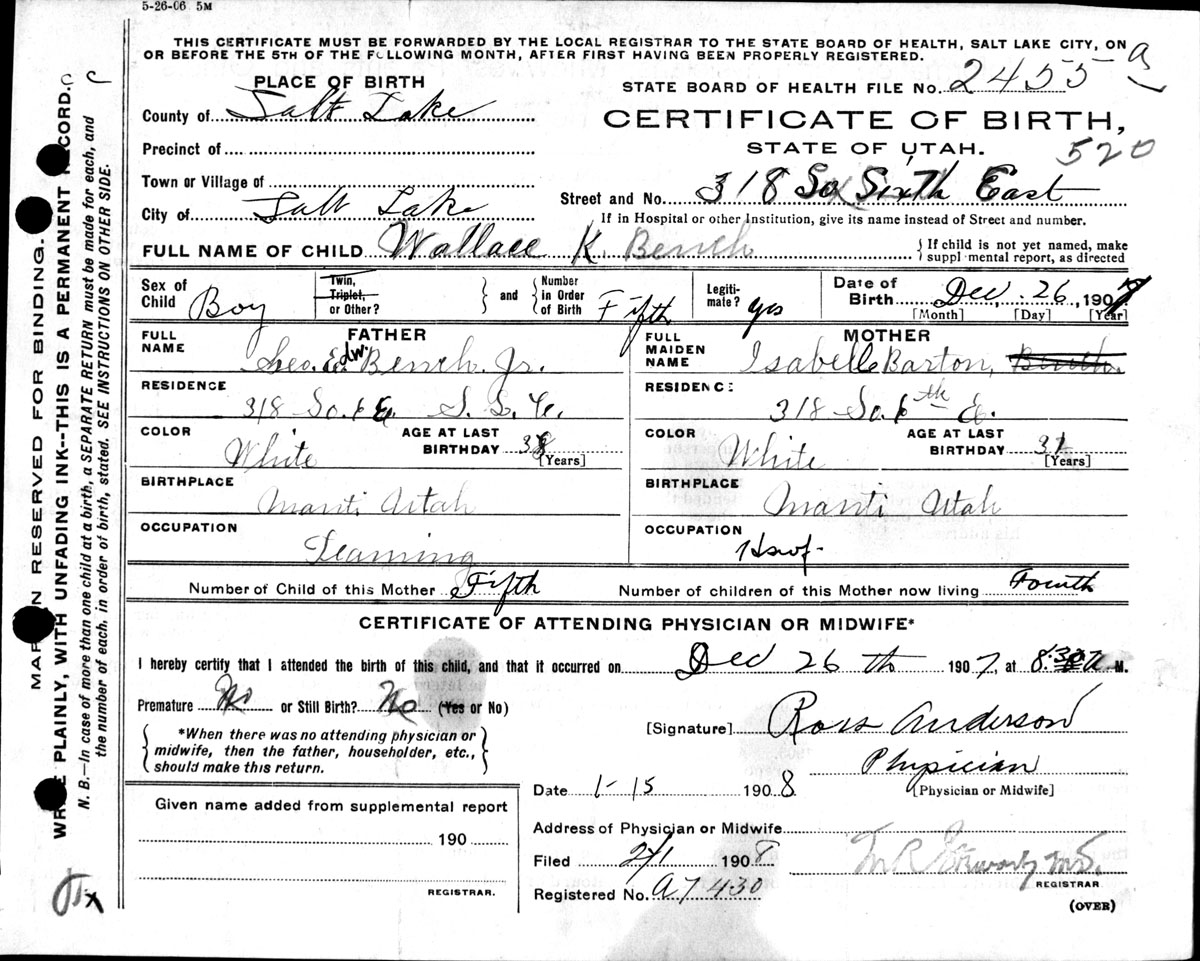 5-26-06 5M
THIS CERTIFICATE MUST BE FORWARDED BY THE LOCAL REGISTRAR TO THE STATE BOARD OF HEALTH, SALT LAKE CITY, ON
OR BEFORE THE 5TH OF THE FOLLOWING MONTH, AFTER FIRST HAVING BEEN PROPERLY REGISTERED.
PLACE OF BIRTH
STATE BOARD OF HEALTH FILE No. 2455 a
County of Salt Lake
CERTIFICATE OF BIRTH,
Precinct of
STATE OF UTAH. 520
Town or Village of
Street and No. 318 So Sixth East
City of Salt Lake
If in Hospital or other Institution, give its name instead of Street and number.
FULL NAME OF CHILD Wallace K. Bench
{ If child is not yet named, make
suppl mental report, as directed
Sex of Child Boy
Twin, Triplet, or Other? } and { Number in Order of Birth Fifth
Legiti-mate? yes
Date of Birth Dec. 26, 1907
[Month] [Day] [Year]
FATHER
FULL NAME Geo. Edw. Bench Jr.
MOTHER
FULL MAIDEN NAME Isabell Barton,
RESIDENCE 318 So. 6 E. S. L. C.
RESIDENCE 318 So. 6th E.
COLOR White
AGE AT LAST BIRTHDAY 38 [Years]
COLOR White
AGE AT LAST BIRTHDAY [Years]
BIRTHPLACE Manti Utah
BIRTHPLACE Manti Utah
OCCUPATION Teaming
OCCUPATION Hswf.
Number of Child of this Mother Fifth
Number of children of this Mother now living Fourth
CERTIFICATE OF ATTENDING PHYSICIAN OR MIDWIFE*
I hereby certify that I attended the birth of this child, and that it occurred on Dec 26 th 1907, at 8:30 A M.
Premature No or Still Birth? No (Yes or No)
{ *When there was no attending physician or
midwife, then the father, householder, etc.,
should make this return. }
[Signature] Ross Anderson
Physician
[Physician or Midwife]
Date 1-15 1908
Given name added from supplemental report
190
REGISTRAR.
Address of Physician or Midwife
Filed 2/1 1908
T. R. M.D.
REGISTRAR
Registered No. A7430
(OVER)
MARGIN RESERVED FOR BINDING.
WRITE PLAINLY, WITH UNFADING INK--THIS IS A PERMANENT RECORD.
N. B.—In case of more than one child at a birth, a SEPARATE RETURN must be made for each, and
the number of each. in order of birth, stated. SEE INSTRUCTIONS ON OTHER SIDE.